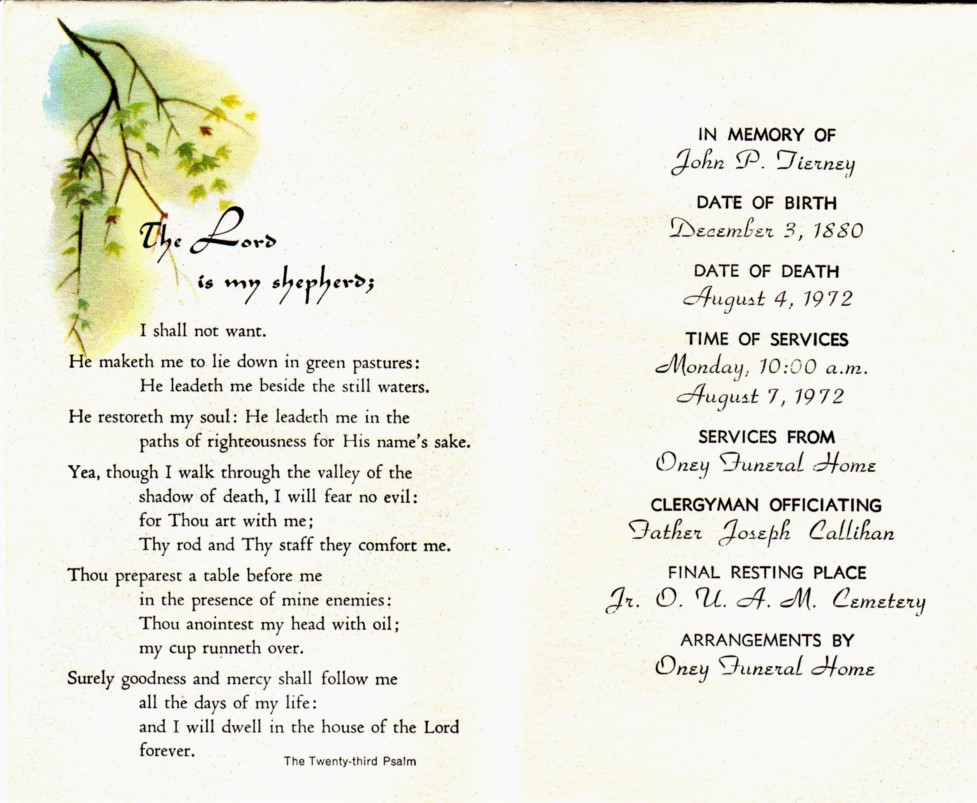 The Lord
is my shepherd;
I shall not want.
He maketh me to lie down in green pastures:
He leadeth me beside the still waters.
He restoreth my soul: He leadeth me in the
paths of righteousness for His name's sake.
Yea, though I walk through the valley of the
shadow of death, I will fear no evil:
for Thou art with me;
Thy rod and Thy staff they comfort me.
Thou preparest a table before me
in the presence of mine enemies:
Thou anointest my head with oil;
my cup runneth over.
Surely goodness and mercy shall follow me
all the days of my life:
and I will dwell in the house of the Lord
forever.
The Twenty-third Psalm
IN MEMORY OF
John P. Tierney
DATE OF BIRTH
December 3, 1880
DATE OF DEATH
August 4, 1972
TIME OF SERVICES
Monday, 10:00 a.m.
August 7, 1972
SERVICES FROM
Oney Funeral Home
CLERGYMAN OFFICIATING
Father Joseph Callihan
FINAL RESTING PLACE
Jr. O. U. A. M. Cemetery
ARRANGEMENTS BY
Oney Funeral Home